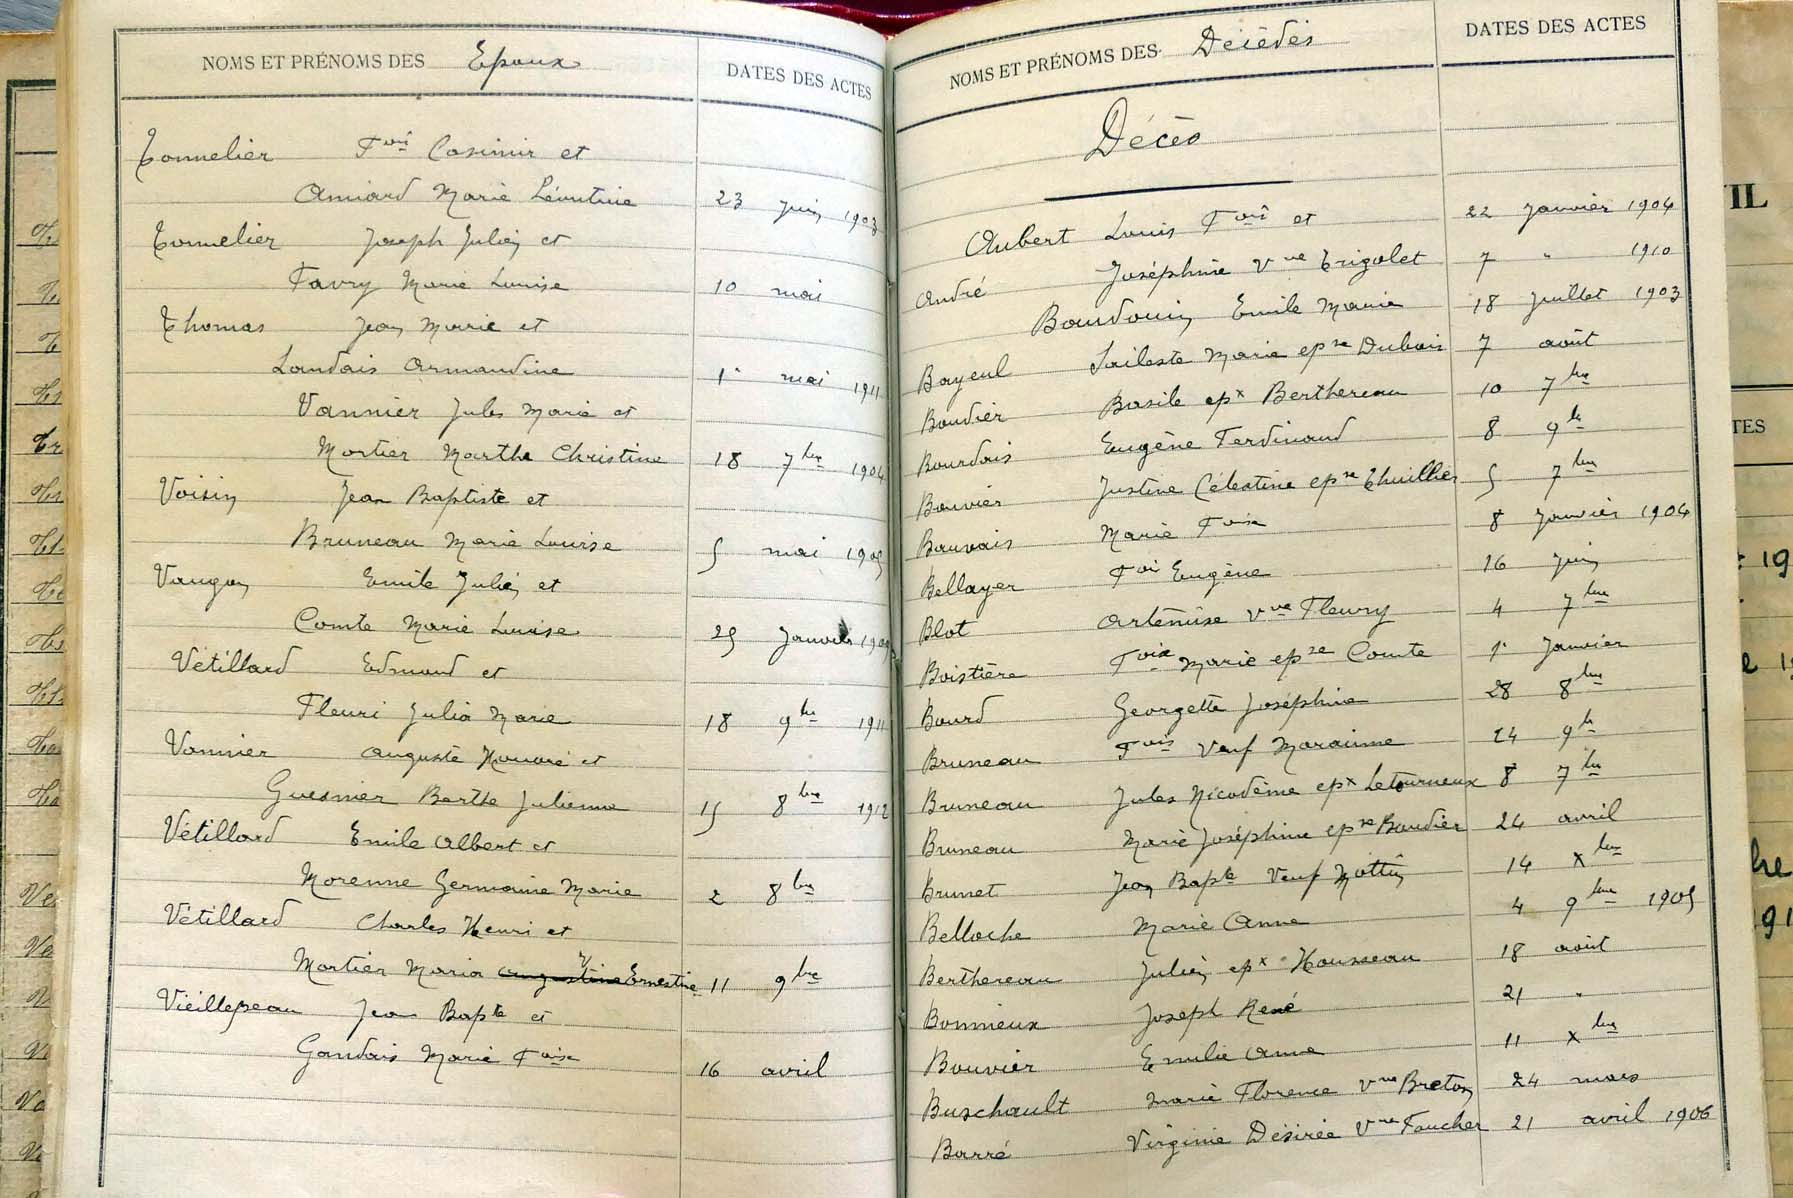 NOMS ET PRÉNOMS DES Epoux DATES DES ACTES
Tonnelier Fois Casimir et
Amiard Marie Léontine 23 Juin 1903
Tonnelier Joseph Julien et
Favry Marie Louise 10 mai
Thomas Jean Marie et
Landais Armandine 1er mai 1911
Vannier Jules Marie et
Mortier Marthe Christine 18 7bre 1904
Voisin Jean Baptiste et
Bruneau Marie Louise 5 mai 1905
Vaugon Emile Julien et
Comte Marie Louise 25 Janvier
Vétillard Edmond et
Fleuri Julia Marie 18 9bre 1911
Vannier Auguste Honoré et
Guesnier Berthe Julienne 15 8bre 1912
Vétillard Emile Albert et
Morenne Germaine Marie 2 8bre
Vétillard Charles Henri et
Mortier Maria Ernestine 11 9bre
Vieillepeau Jean Bapte et
Gandais Marie Foise 16 avril
NOMS ET PRÉNOMS DES Décédés DATES DES ACTES
Décès
Aubert Louis Fois et 22 Janvier 1904
André Joséphine Vve Trigalet 7 " 1910
Baudouin Emile Marie 18 Juillet 1903
Bayeul Marie epse Dubois 7 août
Baudier Basile epx Berthereau 10 7bre
Bourdais Eugène Ferdinand 8 9bre
Bouvier Justine Célestine epse Thuillier 5 7bre
Bauvais Marie Foise 8 Janvier 1904
Bellayer Fois Eugène 16 Juin
Blot Artémise Vve Fleury 4 7bre
Boistière Foise Marie epse Comte 1er Janvier
Bourd Georgette Joséphine 28 8bre
Bruneau Fois Veuf 24 9bre
Bruneau Jules Nicodème epx Letourneux 8 7bre
Bruneau Marie Joséphine epse Baudier 24 avril
Brunet Jean Bapte Veuf Mottin 14 Xbre
Belloche Marie Anne 4 9bre 1905
Berthereau Julien epx Housseau 18 août
Bonnieux Joseph René 21 "
Bouvier Emilie Anna 11 Xbre
Buschault Marie Florence Vve Breton 24 mars
Barré Virginie Désirée Vve Faucher 21 avril 1906